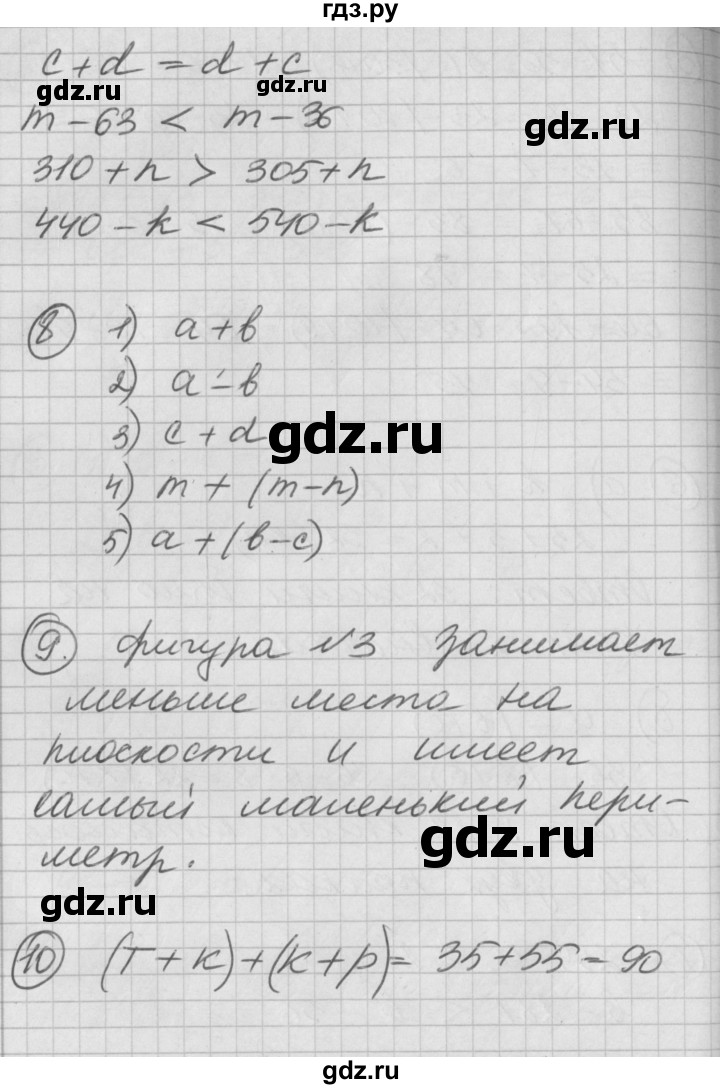 гдз.ру
c + d = d + c
gdz.ru
gdz.ru
m - 63 < m - 36
gdz.ru
310 + n > 305 + n
440 - k < 540 - k
8 1) a + b
2) a - b
3) c + d
gdz.ru
4) m + (m - n)
5) a + (b - c)
9. фигура №3 занимает
меньше места на
плоскости и имеет
самый маленький пери-
метр.
gdz.ru
gdz.ru
10 (т + к) + (к + р) = 35 + 55 = 90
gdz.ru